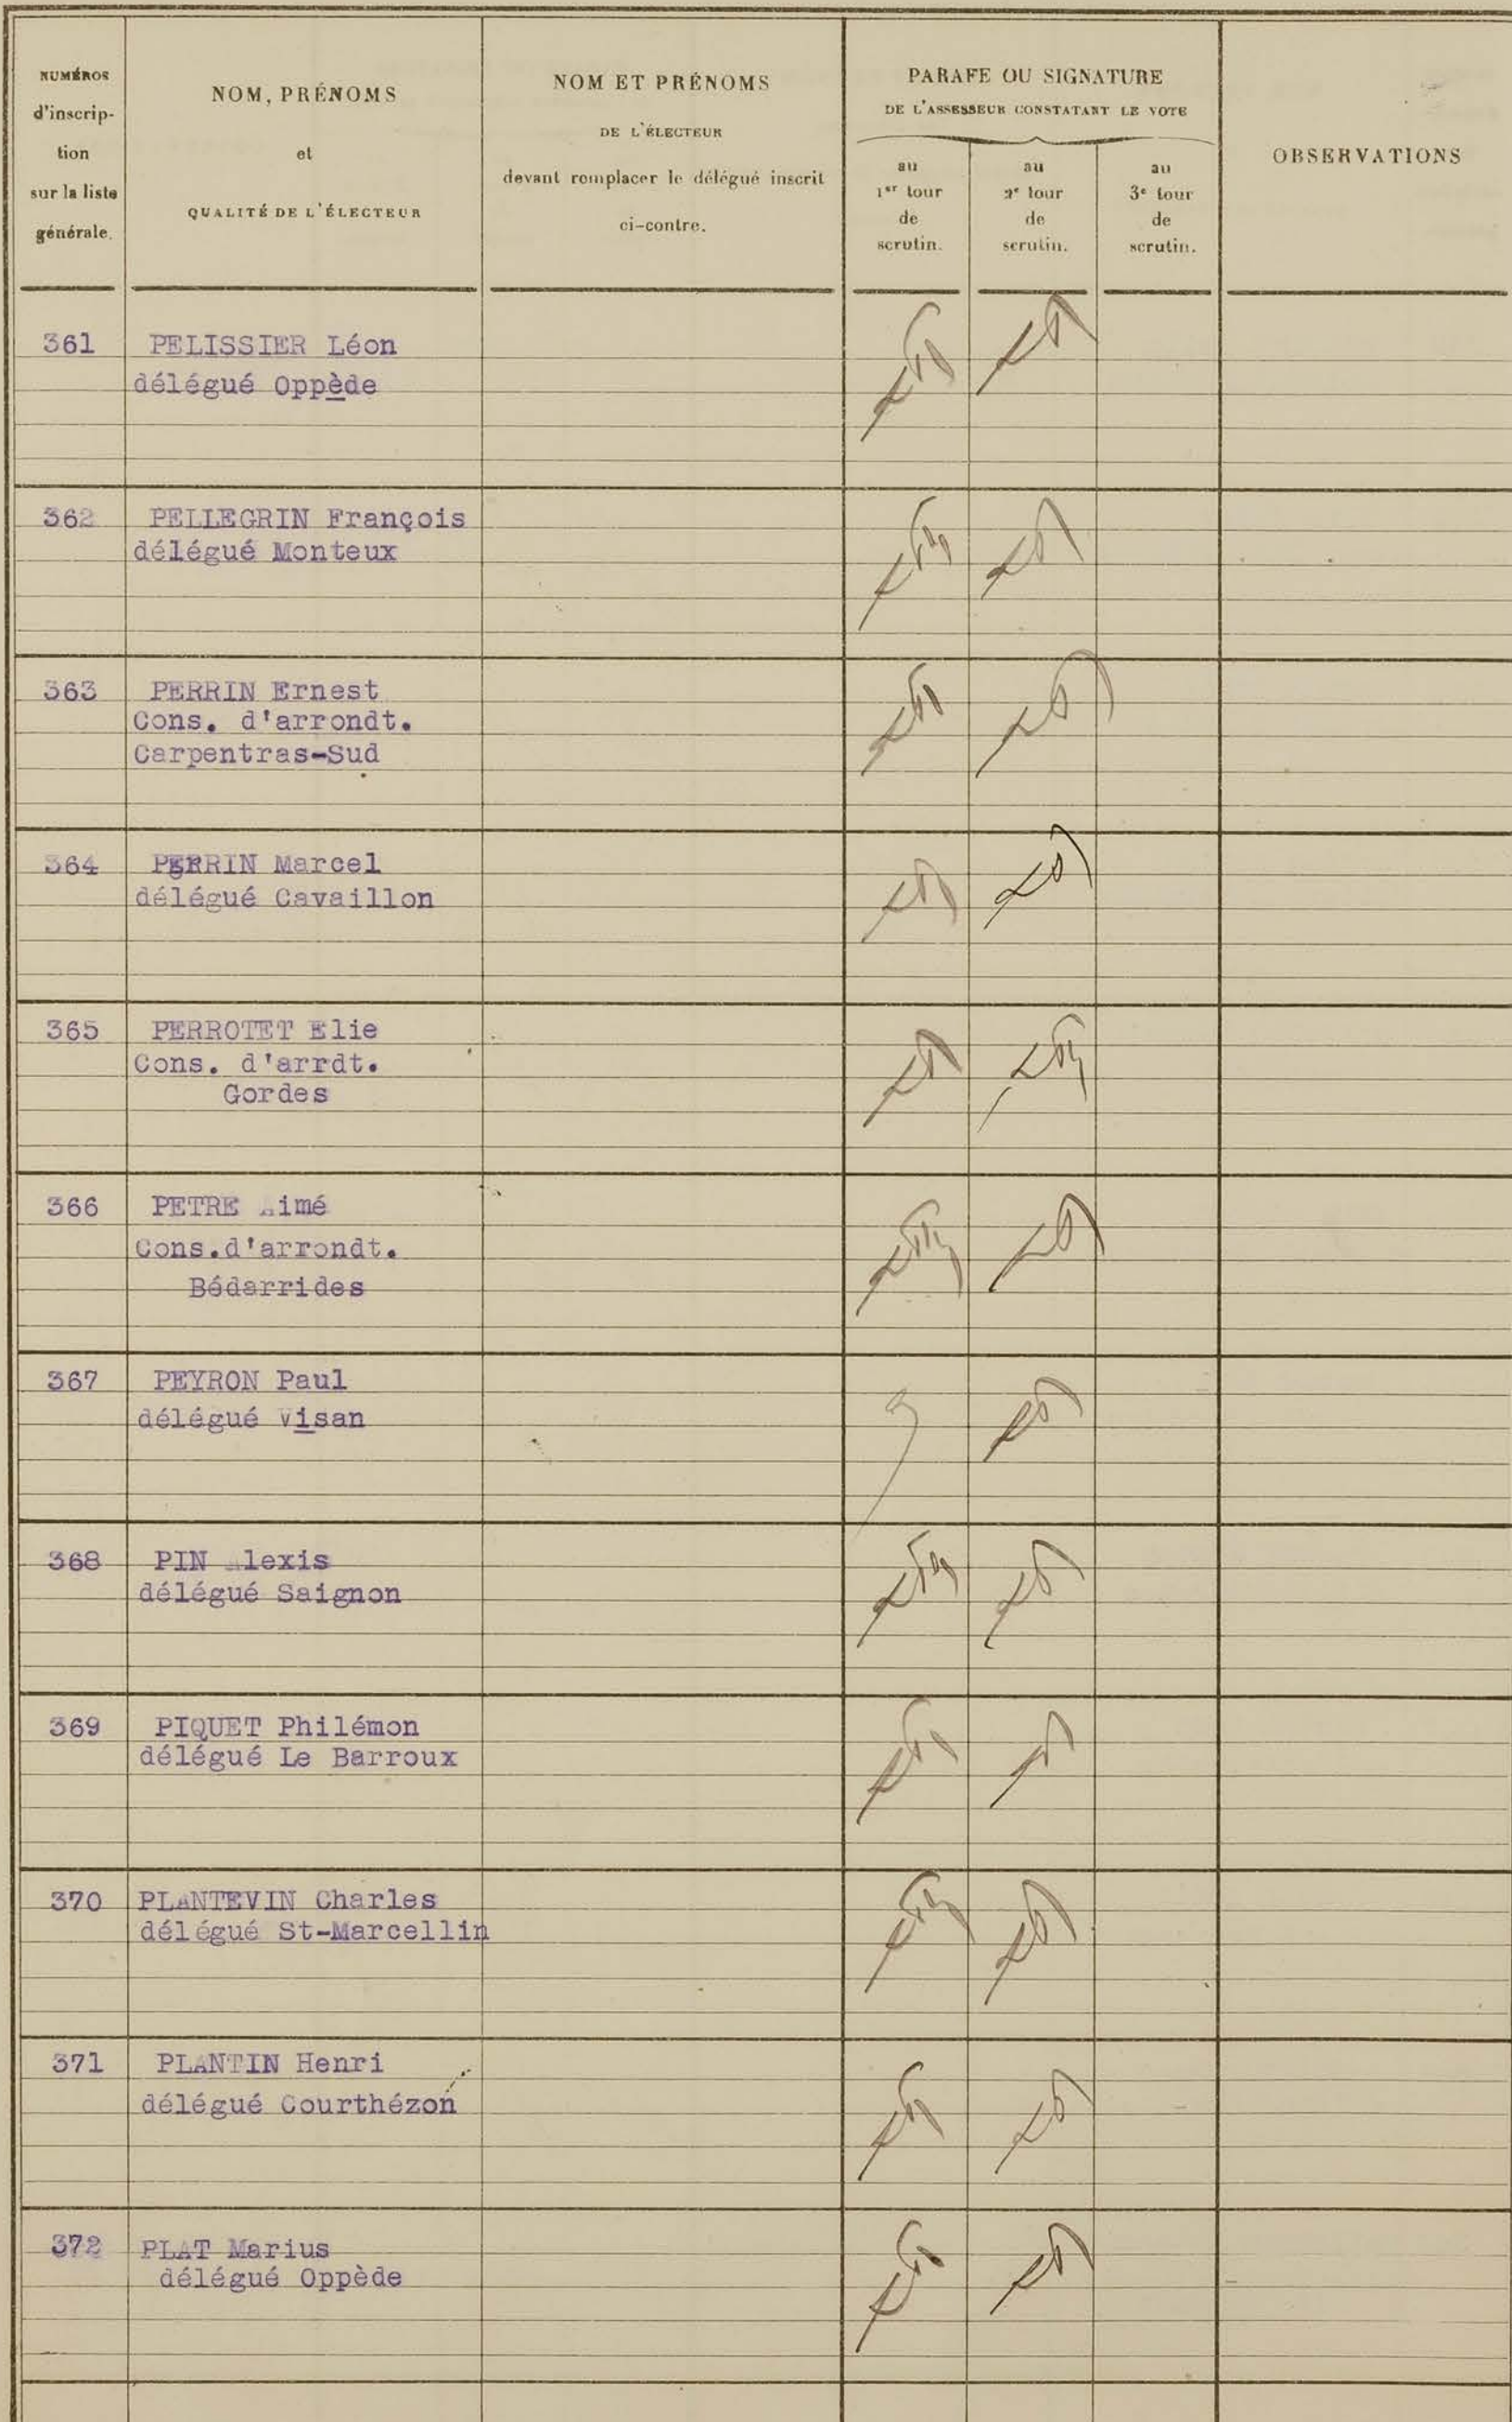 NUMÉROS
d'inscrip-
tion
sur la liste
générale.
NOM, PRÉNOMS
et
QUALITÉ DE L'ÉLECTEUR
NOM ET PRÉNOMS
DE L'ÉLECTEUR
devant remplacer le délégué inscrit
ci-contre.
PARAFE OU SIGNATURE
DE L'ASSESSEUR CONSTATANT LE VOTE
au
1er tour
de
scrutin.
au
2e tour
de
scrutin.
au
3e tour
de
scrutin.
OBSERVATIONS
361 PELISSIER Léon
délégué Oppède
362 PELLEGRIN François
délégué Monteux
363 PERRIN Ernest
Cons. d'arrondt.
Carpentras-Sud
364 PERRIN Marcel
délégué Cavaillon
365 PERROTET Elie
Cons. d'arrdt.
Gordes
366 PETRE Aimé
Cons.d'arrondt.
Bédarrides
367 PEYRON Paul
délégué Visan
368 PIN Alexis
délégué Saignon
369 PIQUET Philémon
délégué Le Barroux
370 PLANTEVIN Charles
délégué St-Marcellin
371 PLANTIN Henri
délégué Courthézon
372 PLAT Marius
délégué Oppède